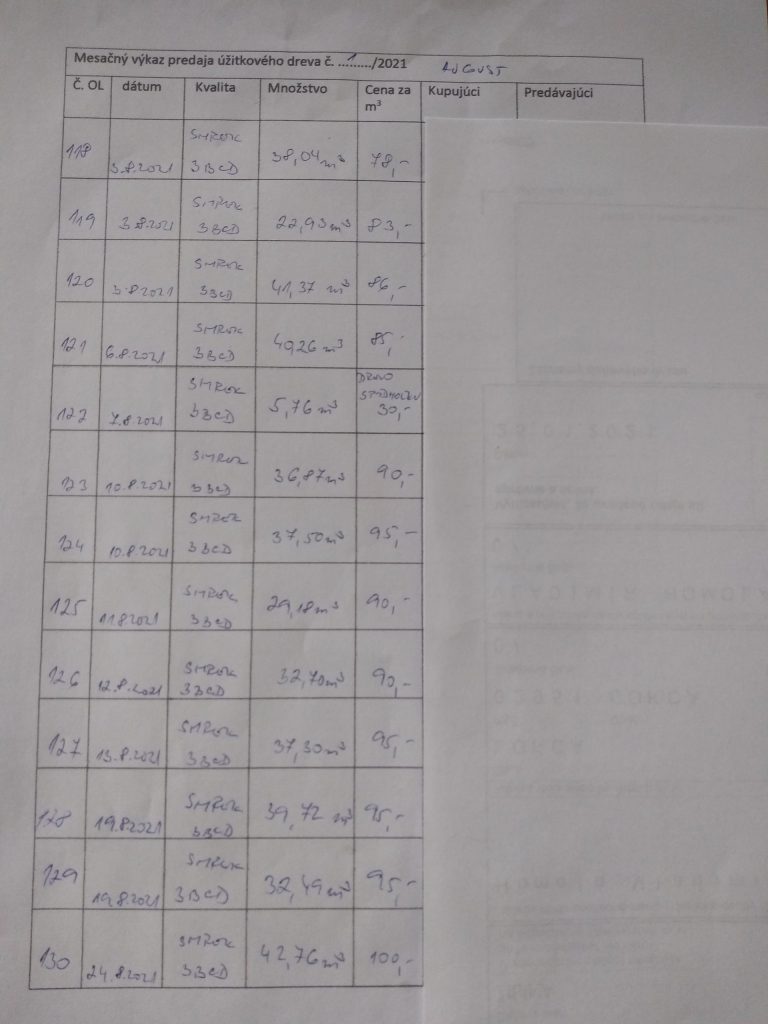 Mesačný výkaz predaja úžitkového dreva č. ...1.../2021 AUGUST
Č. OL dátum Kvalita Množstvo Cena za m³ Kupujúci Predávajúci
118 3.8.2021 SMREK 3BCD 38,04 m³ 78,-
119 3.8.2021 SMREK 3BCD 22,93 m³ 83,-
120 3.8.2021 SMREK 3BCD 41,37 m³ 86,-
121 6.8.2021 SMREK 3BCD 85,-
122 7.8.2021 SMREK 3BCD 5,76 m³ DREVO 30,-
123 10.8.2021 SMREK 3BCD 36,87 m³ 90,-
124 10.8.2021 SMREK 3BCD 37,50 m³ 95,-
125 11.8.2021 SMREK 3BCD 29,18 m³ 90,-
126 12.8.2021 SMREK 3BCD 32,70 m³ 90,-
127 13.8.2021 SMREK 3BCD 37,30 m³ 95,-
128 19.8.2021 SMREK 3BCD 39,72 m³ 95,-
129 19.8.2021 SMREK 3BCD 32,49 m³ 95,-
130 24.8.2021 SMREK 3BCD 42,76 m³ 100,-